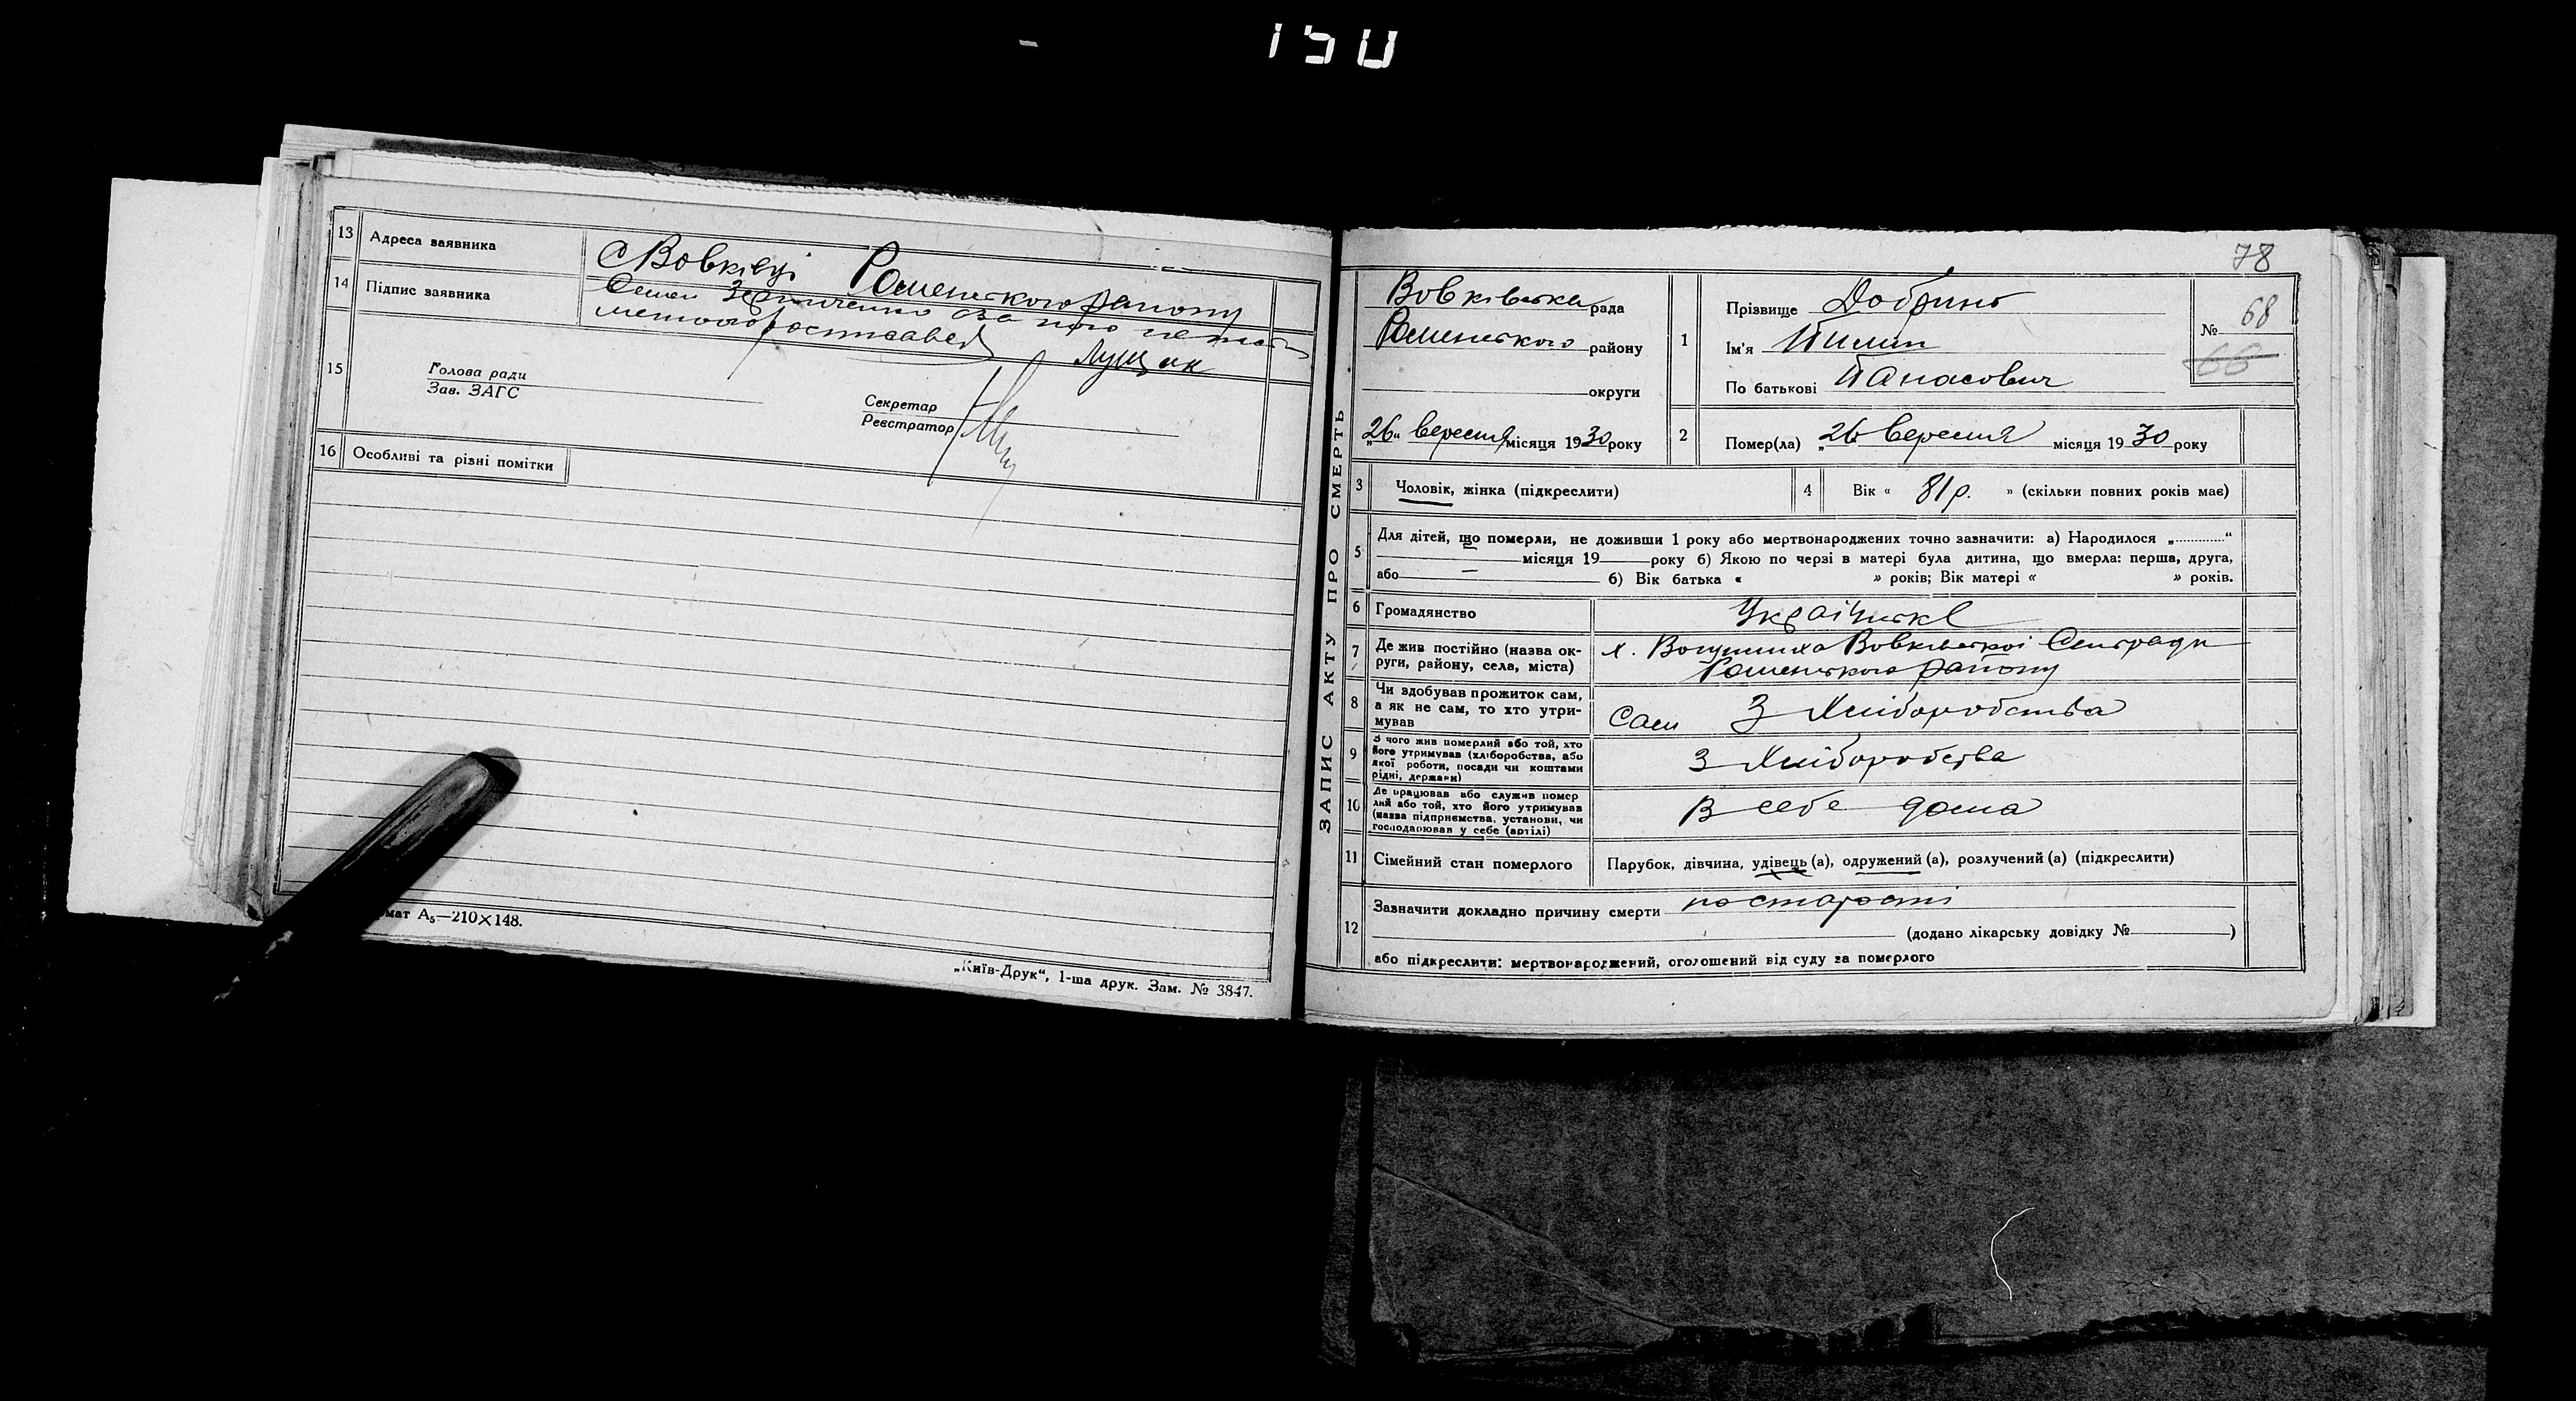 150
13 Адреса заявника с Вовківці Роменського району
14 Підпис заявника Семен за його
Лущик
15 Голова ради
Зав. ЗАГС
Секретар
Реєстратор
16 Особливі та різні помітки
мат А5—210×148.
„Київ-Друк“, 1-ша друк. Зам. № 3847.
78
ЗАПИС АКТУ ПРО СМЕРТЬ
Вовківська рада
Роменського району
округи
„26“ вересня місяця 1930 року
1 Прізвище Добринь
Ім'я Пилип
По батькові Панасович
№ 68
66
2 Помер(ла) „26 вересня місяця 1930 року
3 Чоловік, жінка (підкреслити)
4 Вік « 81 р. » (скільки повних років має)
5 Для дітей, що померли, не доживши 1 року або мертвонароджених точно зазначити: а) Народилося „.............“
— місяця 19 року б) Якою по черзі в матері була дитина, що вмерла: перша, друга,
або — б) Вік батька « » років; Вік матері « » років.
6 Громадянство Українське
7 Де жив постійно (назва ок-
руги, району, села, міста)
х. Вовківської Сільради
Роменського району
8 Чи здобував прожиток сам,
а як не сам, то хто утри-
мував
Сам З Хліборобства
9 З чого жив померлий або той, хто
його утримував (хліборобства, або
якої роботи, посади чи коштами
рідні, держави)
З Хліборобства
10 Де працював або служив помер
лий або той, хто його утримував
(назва підприємства, установи, чи
господарював у себе (артілі)
В себе дома
11 Сімейний стан померлого Парубок, дівчина, удівець (а), одружений (а), розлучений (а) (підкреслити)
12 Зазначити докладно причину смерти по старості
(додано лікарську довідку № )
або підкреслити: мертвонароджений, оголошений від суду за померлого